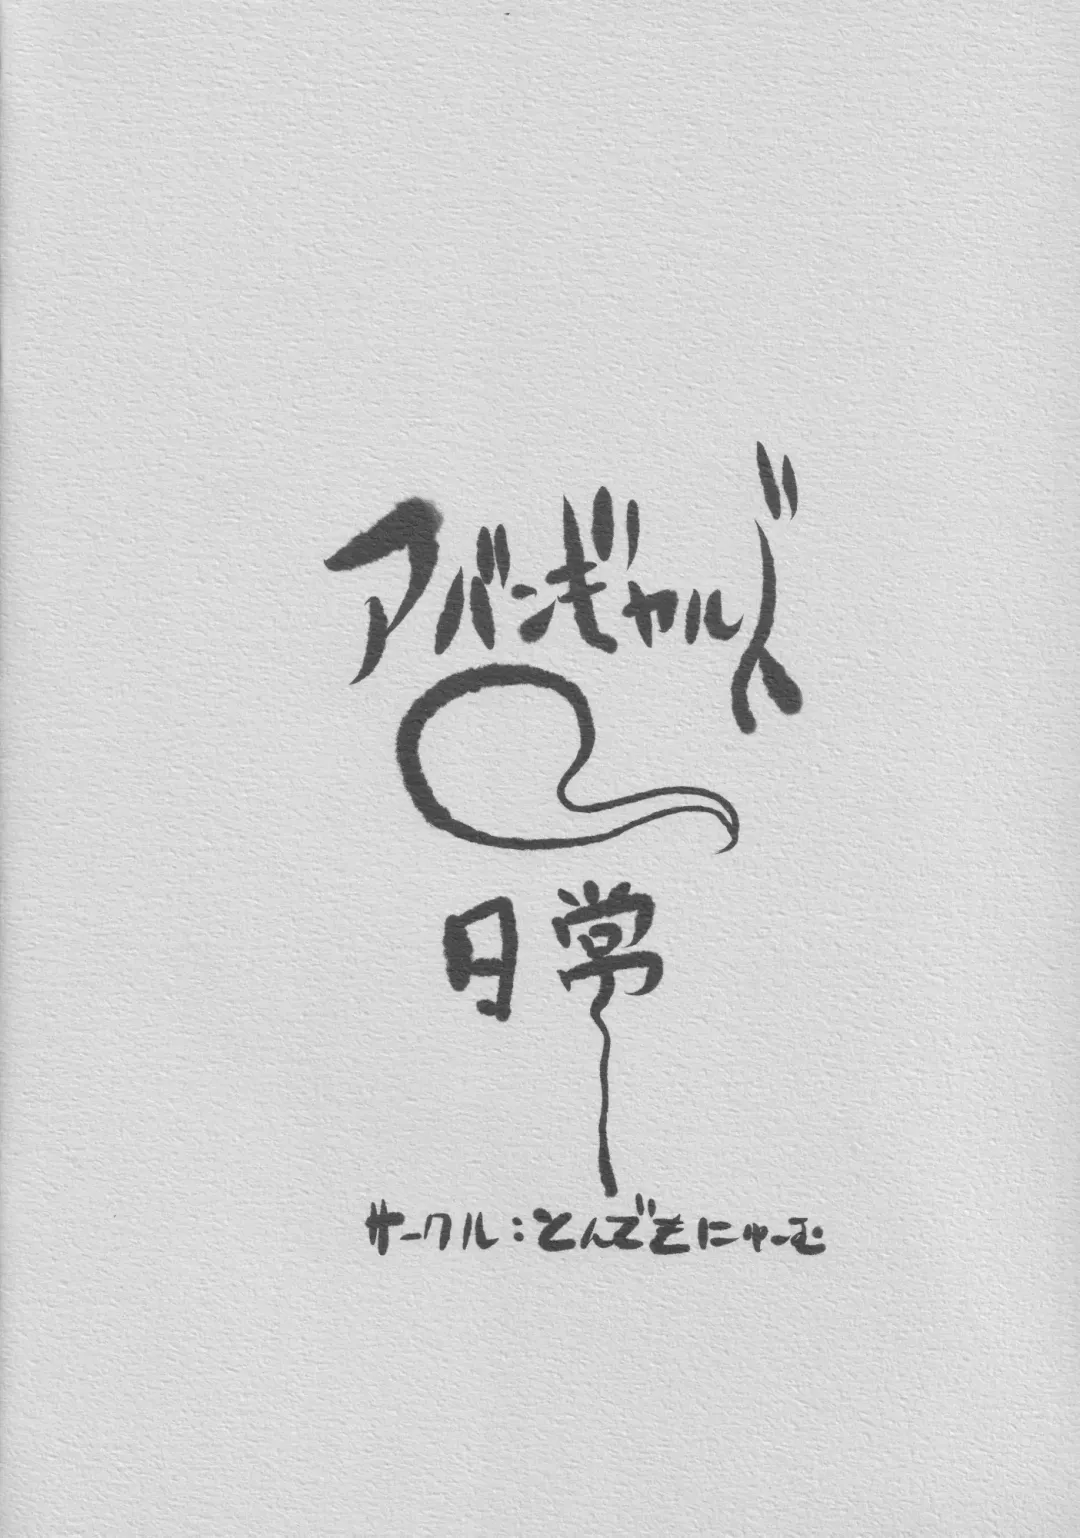 アバンギャルズ
の
日常
サークル：とんでもにゅーむ